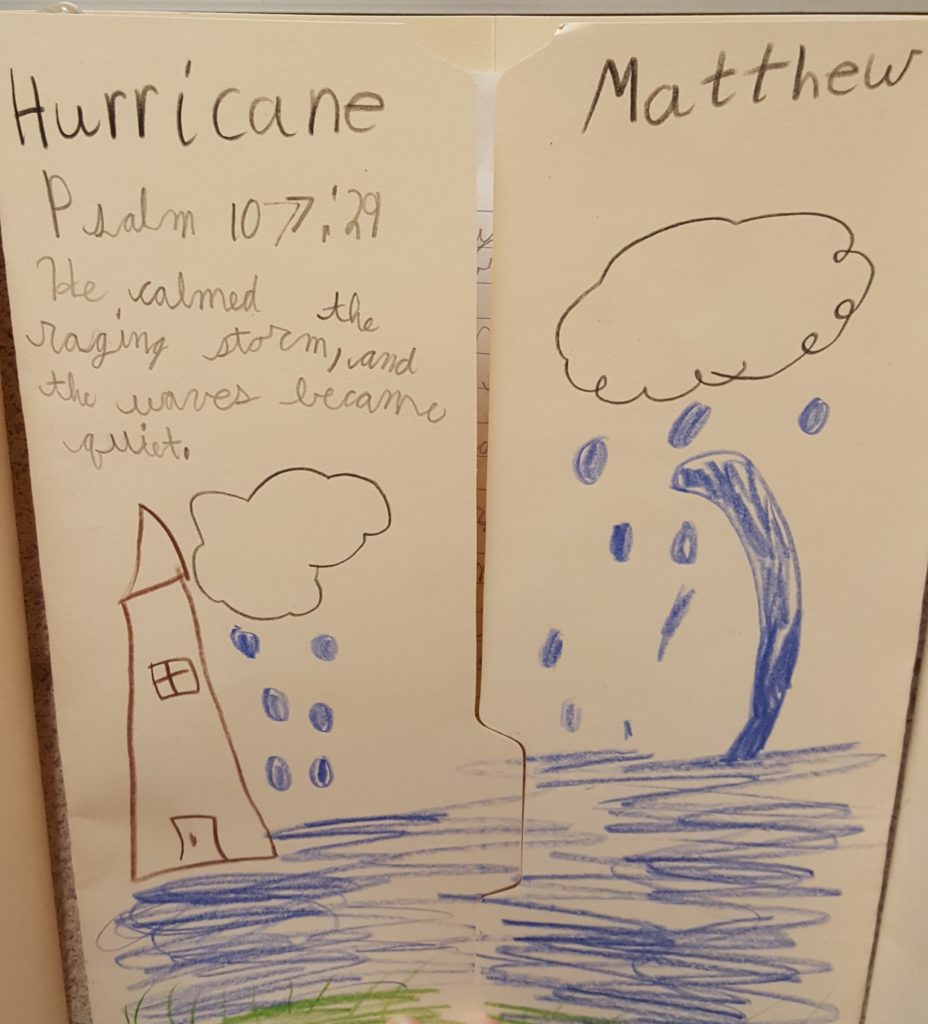 Hurricane Matthew
Psalm 107:29
He calmed the
raging storm, and
the waves became
quiet.